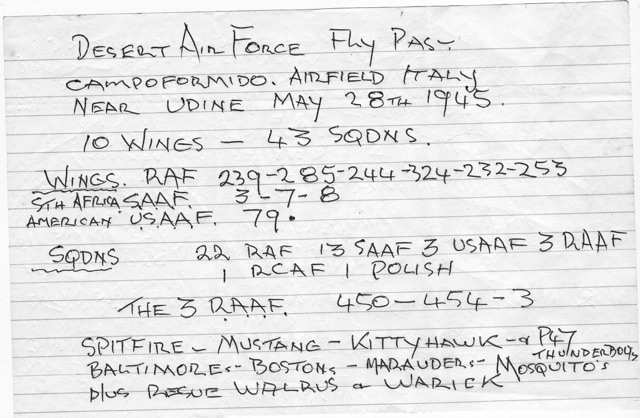 DESERT AIR FORCE Fly PAS-
CAMPOFORMIDO. AIRFIELD ITALY
NEAR UDINE MAY 28TH 1945.
10 WINGS - 43 SQDNS.
WINGS. RAF 239-285-244-324-232-253
STH AFRICA SAAF. 3-7-8
AMERICAN U.S.A.A.F. 79.
SQDNS 22 RAF 13 SAAF 3 USAAF 3 RAAF
1 RCAF 1 POLISH
THE 3 R.A.A.F. 450-454-3
SPITFIRE - MUSTANG - KITTYHAWK - & P47 THUNDERBOLTS
BALTIMORES - BOSTONS - MARAUDERS - MOSQUITO'S
plus RESUE WALRUS & WARICK